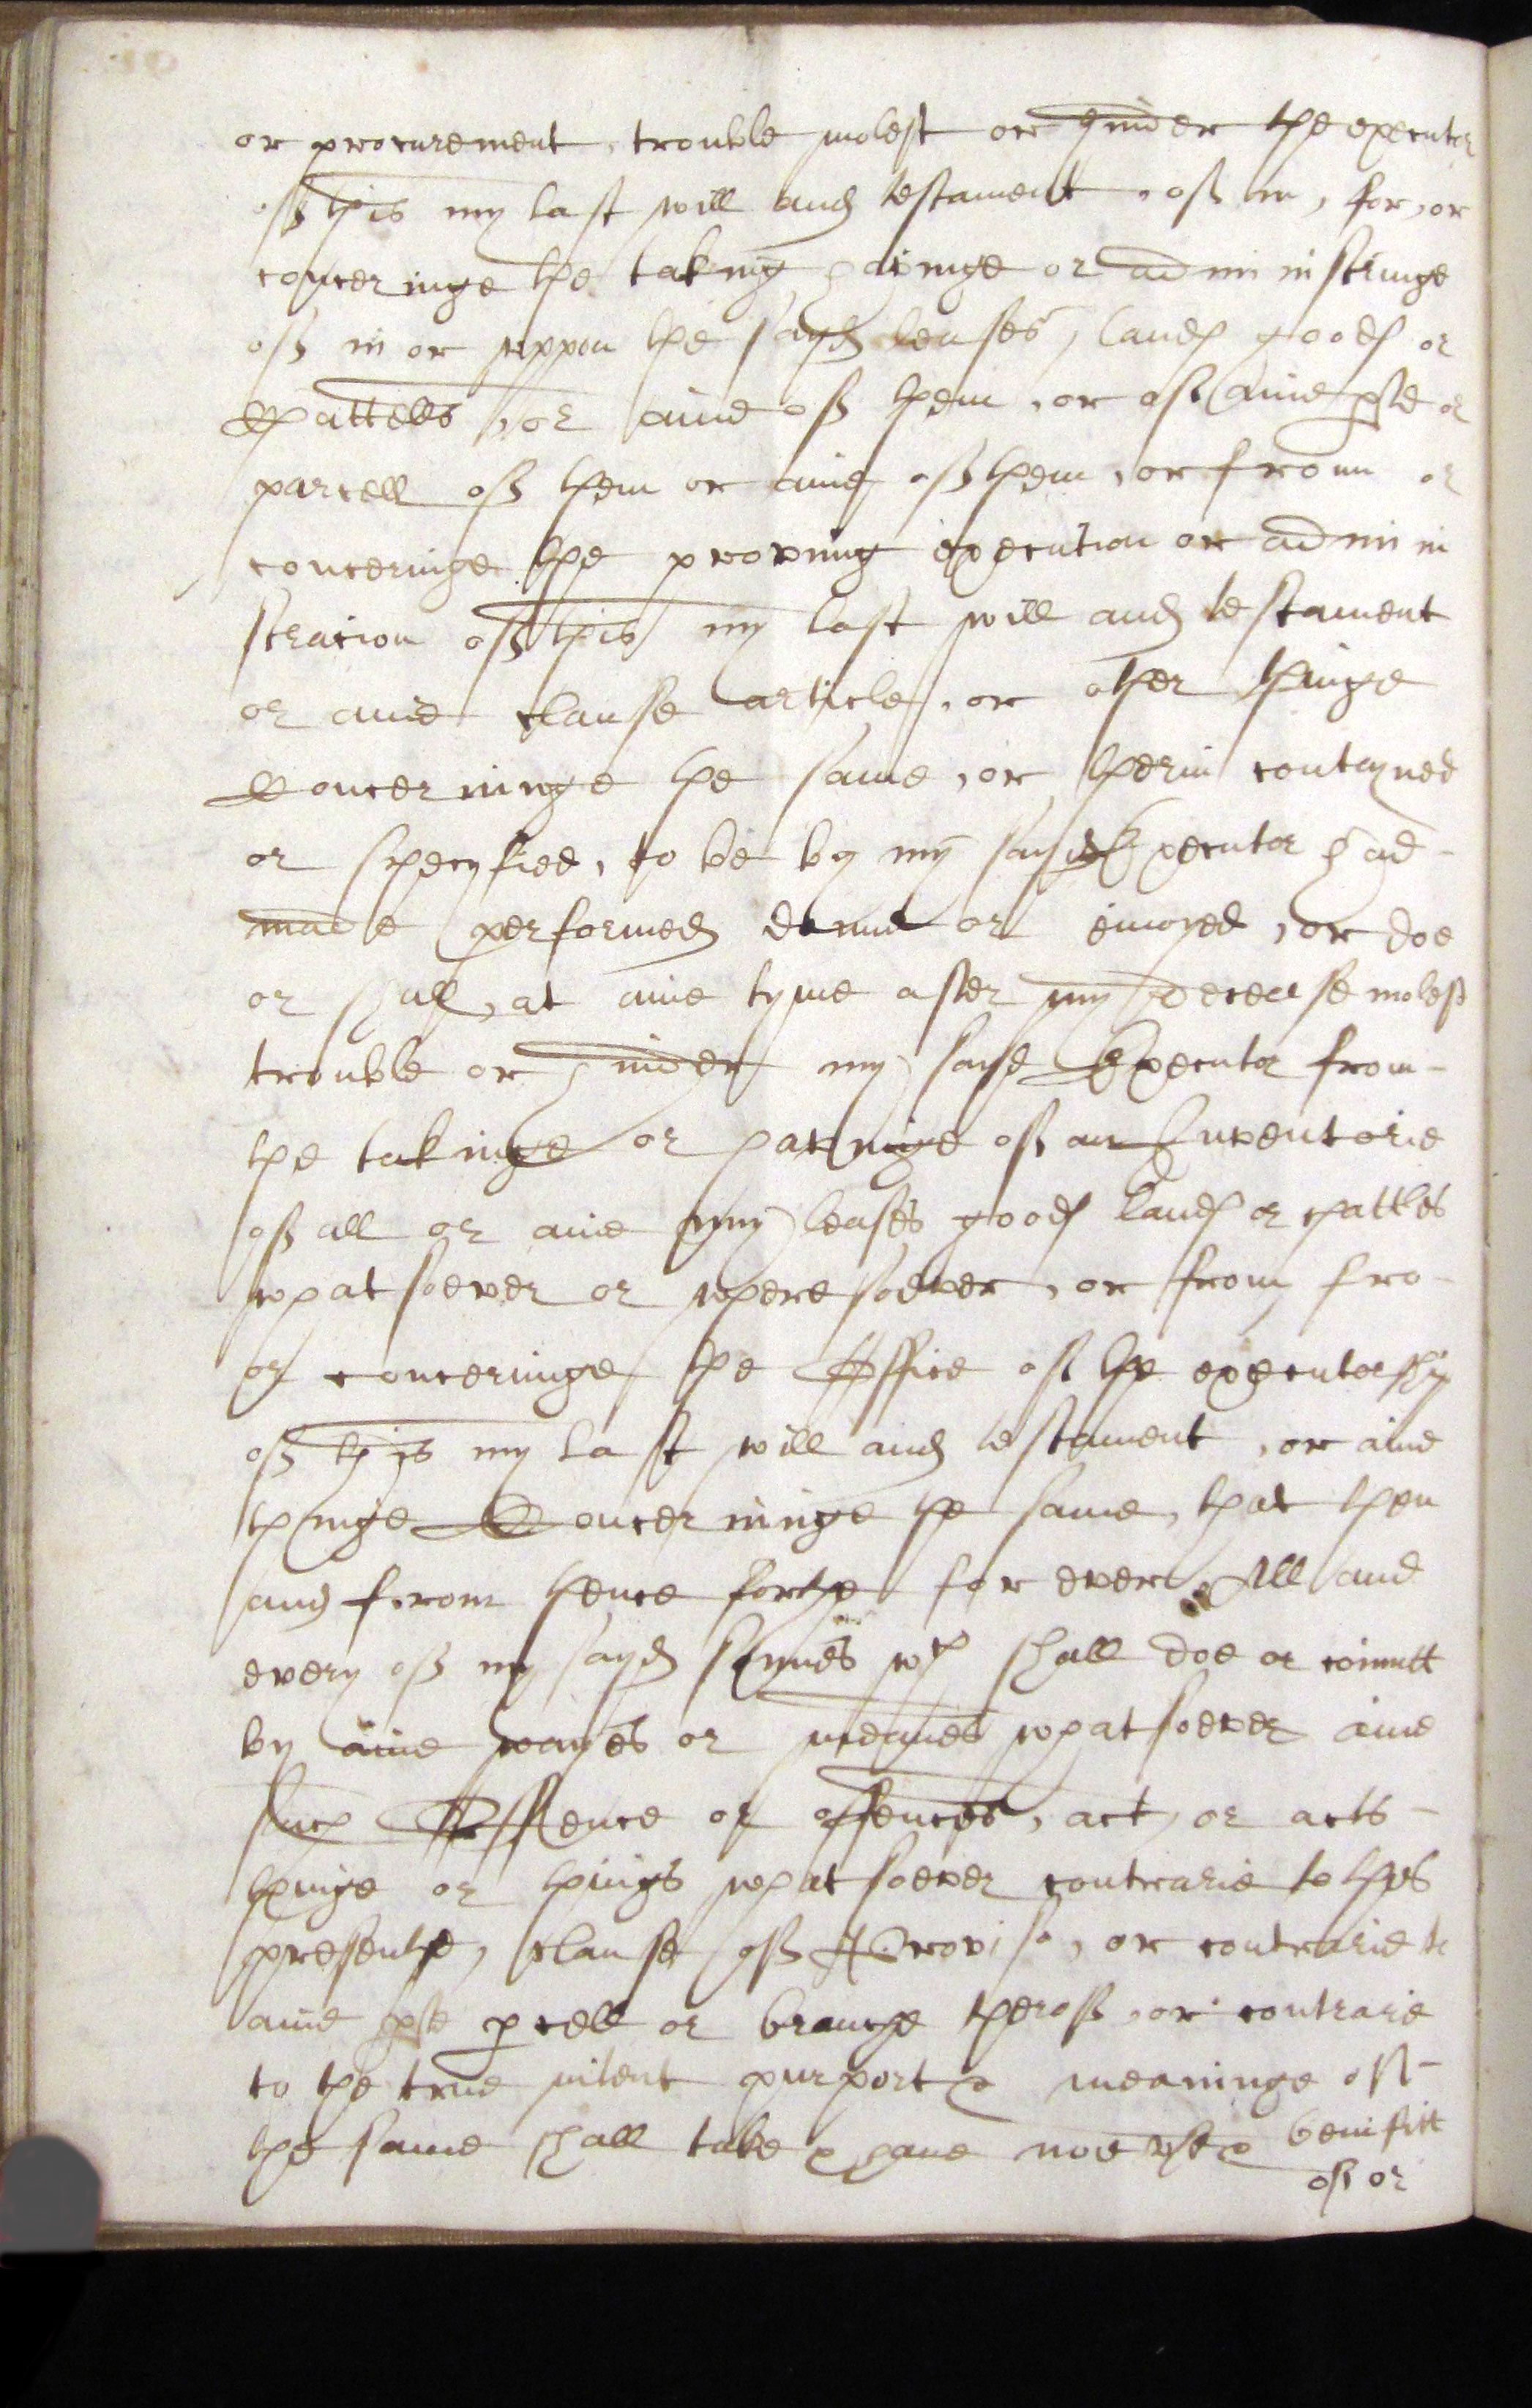 or procurement, trouble molest or hinder the executor
off this my last will and testament, off in, for, or
conceringe the taking havinge or administringe
off in or uppon the sayd leases, lands goods or
Chattells, or anie off them, or off anie pte or
parcell off them or anie off them, or from or
conceringe the proving execution or admini
stracion off this my last will and testament
or anie clause article, or other thinge
Concerninge the same, or therin contayned
or specyfied, to be by my sayd Executor had
made performed donne or enioyed, or doe
or shall, at anie tyme after my decease molest
trouble or hinder my sayd Executor from
the takinge or havinge off an Inventorie
off all or anie my leases goods lands or chattles
whatsoever or wheresoever, or from fro
or conceringe the Office off the executorshyp
off this my last will and testament, or anie
thinge Concerninge the same, that then
and from hence forthe for ever, All and
every off my sayd sonnes wch shall doe or comitt
by anie wayes or meanes whatsoever anie
such Offence or offences, act, or acts
thinge or things whatsoever contrarie to thys
presente, clause off Proviso, or contrarie to
anie pte pcell or branche theroff, or contrarie
to the true intent purport & meaninge off
the same shall take & have noe use & benifitt
off or